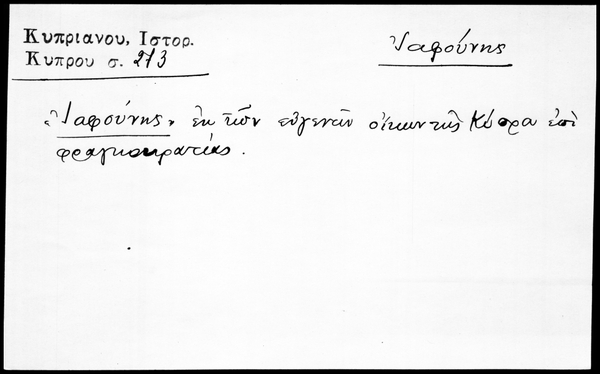 Κυπριανου, Ιστορ.
Κυπρου σ. 273
Ἰαφούνης
«Ἰαφούνης» ἐκ τῶν εὐγενῶν οἴκων τῆς Κύπρου ἐπὶ
φραγκοκρατίας.